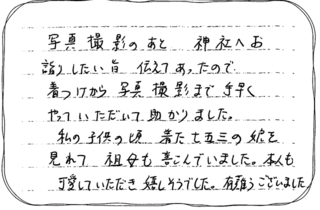 写真撮影のあと 神社へお
詣りしたい旨 伝えてあったので
着つけから写真撮影まで手早く
やっていただいて助かりました。
私の子供の頃 着た七五三の 姿を
見れて 祖母も喜こんでいました。本人も
可愛していただき嬉しそうでした。有難うございました